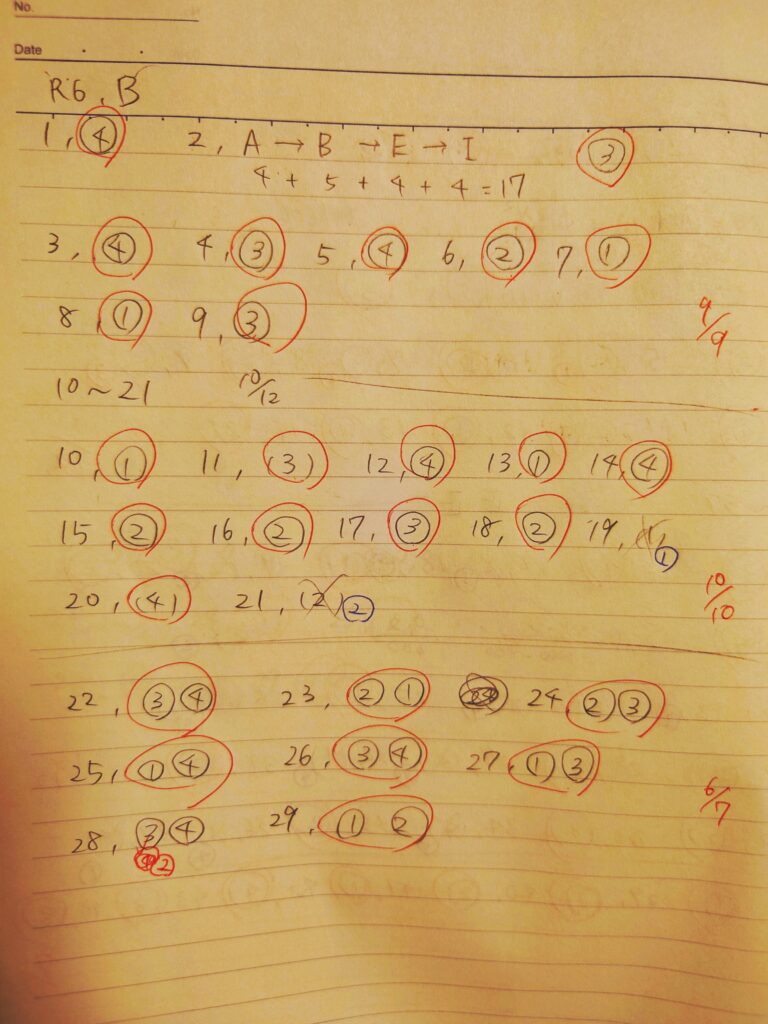 No.
Date
R6, B
1, ④ 2, A → B → E → I ③
4 + 5 + 4 + 4 = 17
3, ④ 4, ③ 5, ④ 6, ② 7, ①
8, ① 9, ③ 9/9
10～21 10/12
10, ① 11, (3) 12, ④ 13, ① 14, ④
15, ② 16, ② 17, ③ 18, ② 19, ①
20, (4) 21, (2) ② 10/10
22, ③④ 23, ②① 24, ②③
25, ①④ 26, ③④ 27, ①③ 6/7
28, ③④ 29, ①②
②